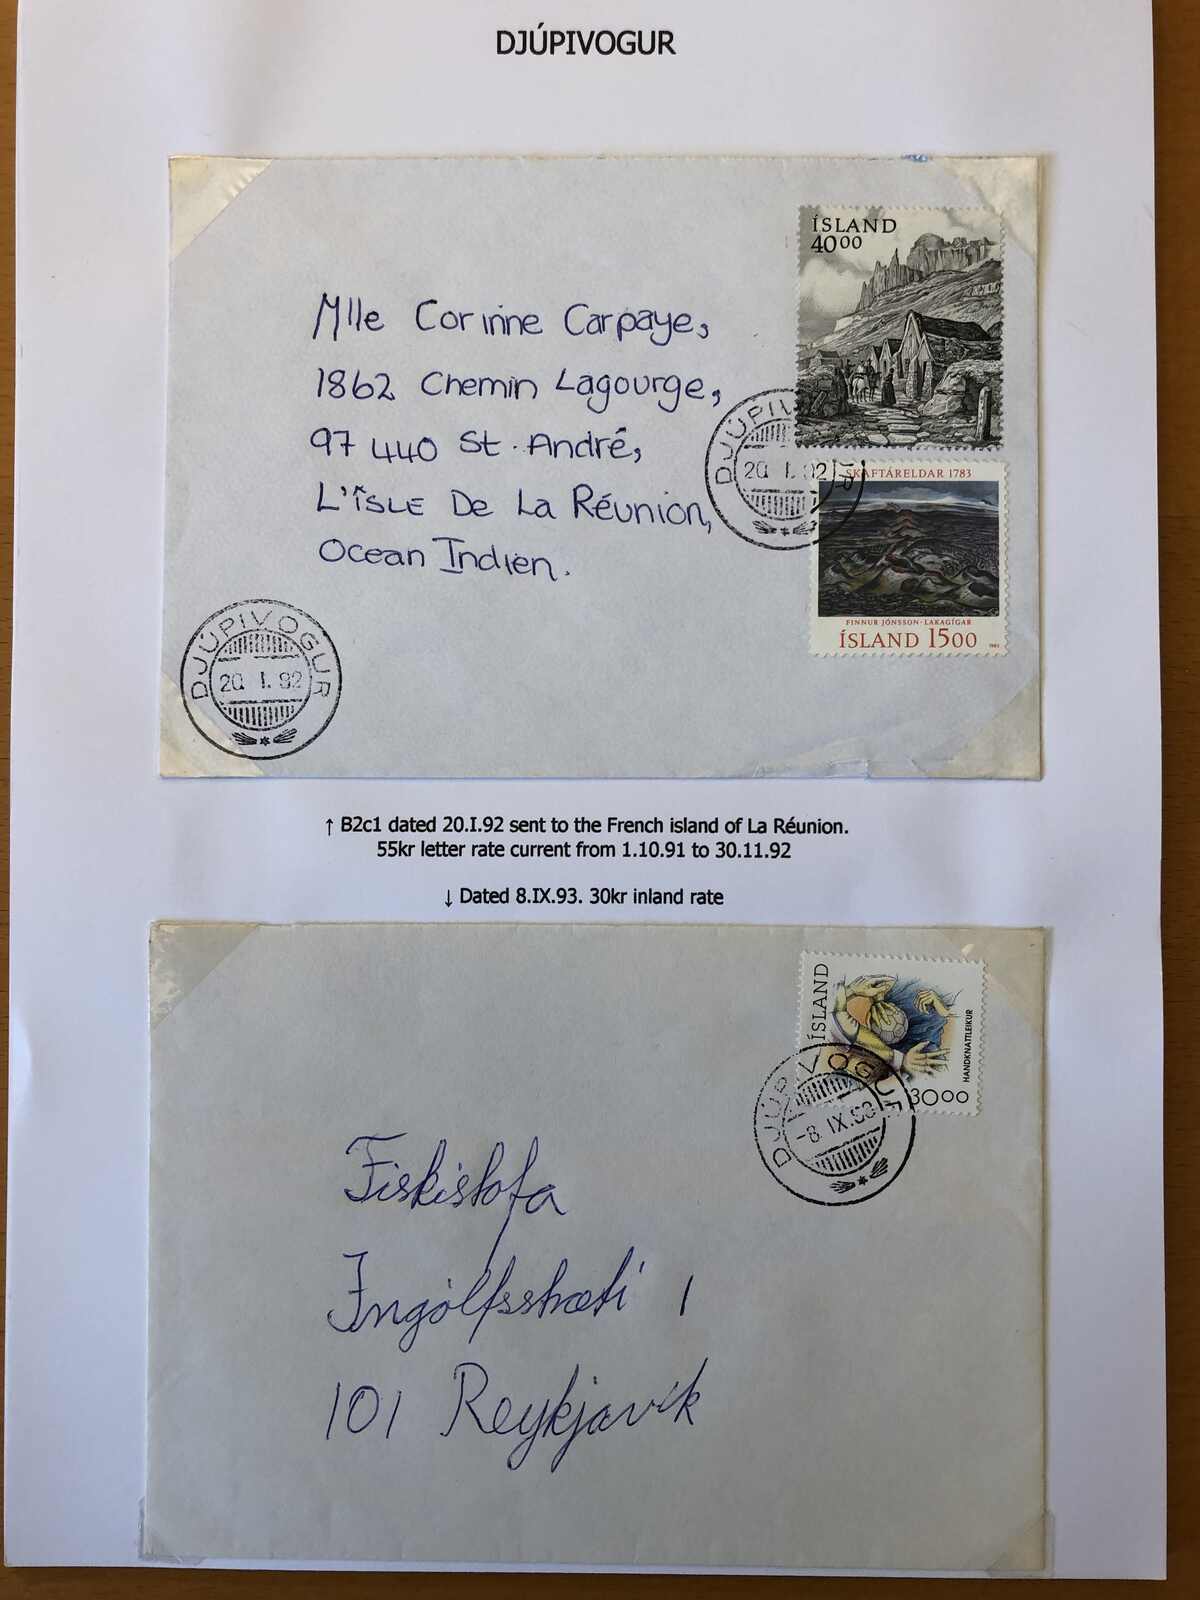 DJÚPIVOGUR
ÍSLAND
4000
Mlle Corinne Carpaye,
1862 Chemin Lagourge,
97440 St. André,
L'ÎSLE De La Réunion,
Ocean Indien.
DJÚPIVOGUR
20. I. 92
SKAFTÁRELDAR 1783
FINNUR JÓNSSON · LAKAGÍGAR
ÍSLAND 1500
1983
DJÚPIVOGUR
20. I. 92
↑ B2c1 dated 20.I.92 sent to the French island of La Réunion.
55kr letter rate current from 1.10.91 to 30.11.92
↓ Dated 8.IX.93. 30kr inland rate
ÍSLAND
HANDKNATTLEIKUR
3000
DJÚPIVOGUR
-8. IX.93
Fiskistofa
Ingólfsstræti 1
101 Reykjavík